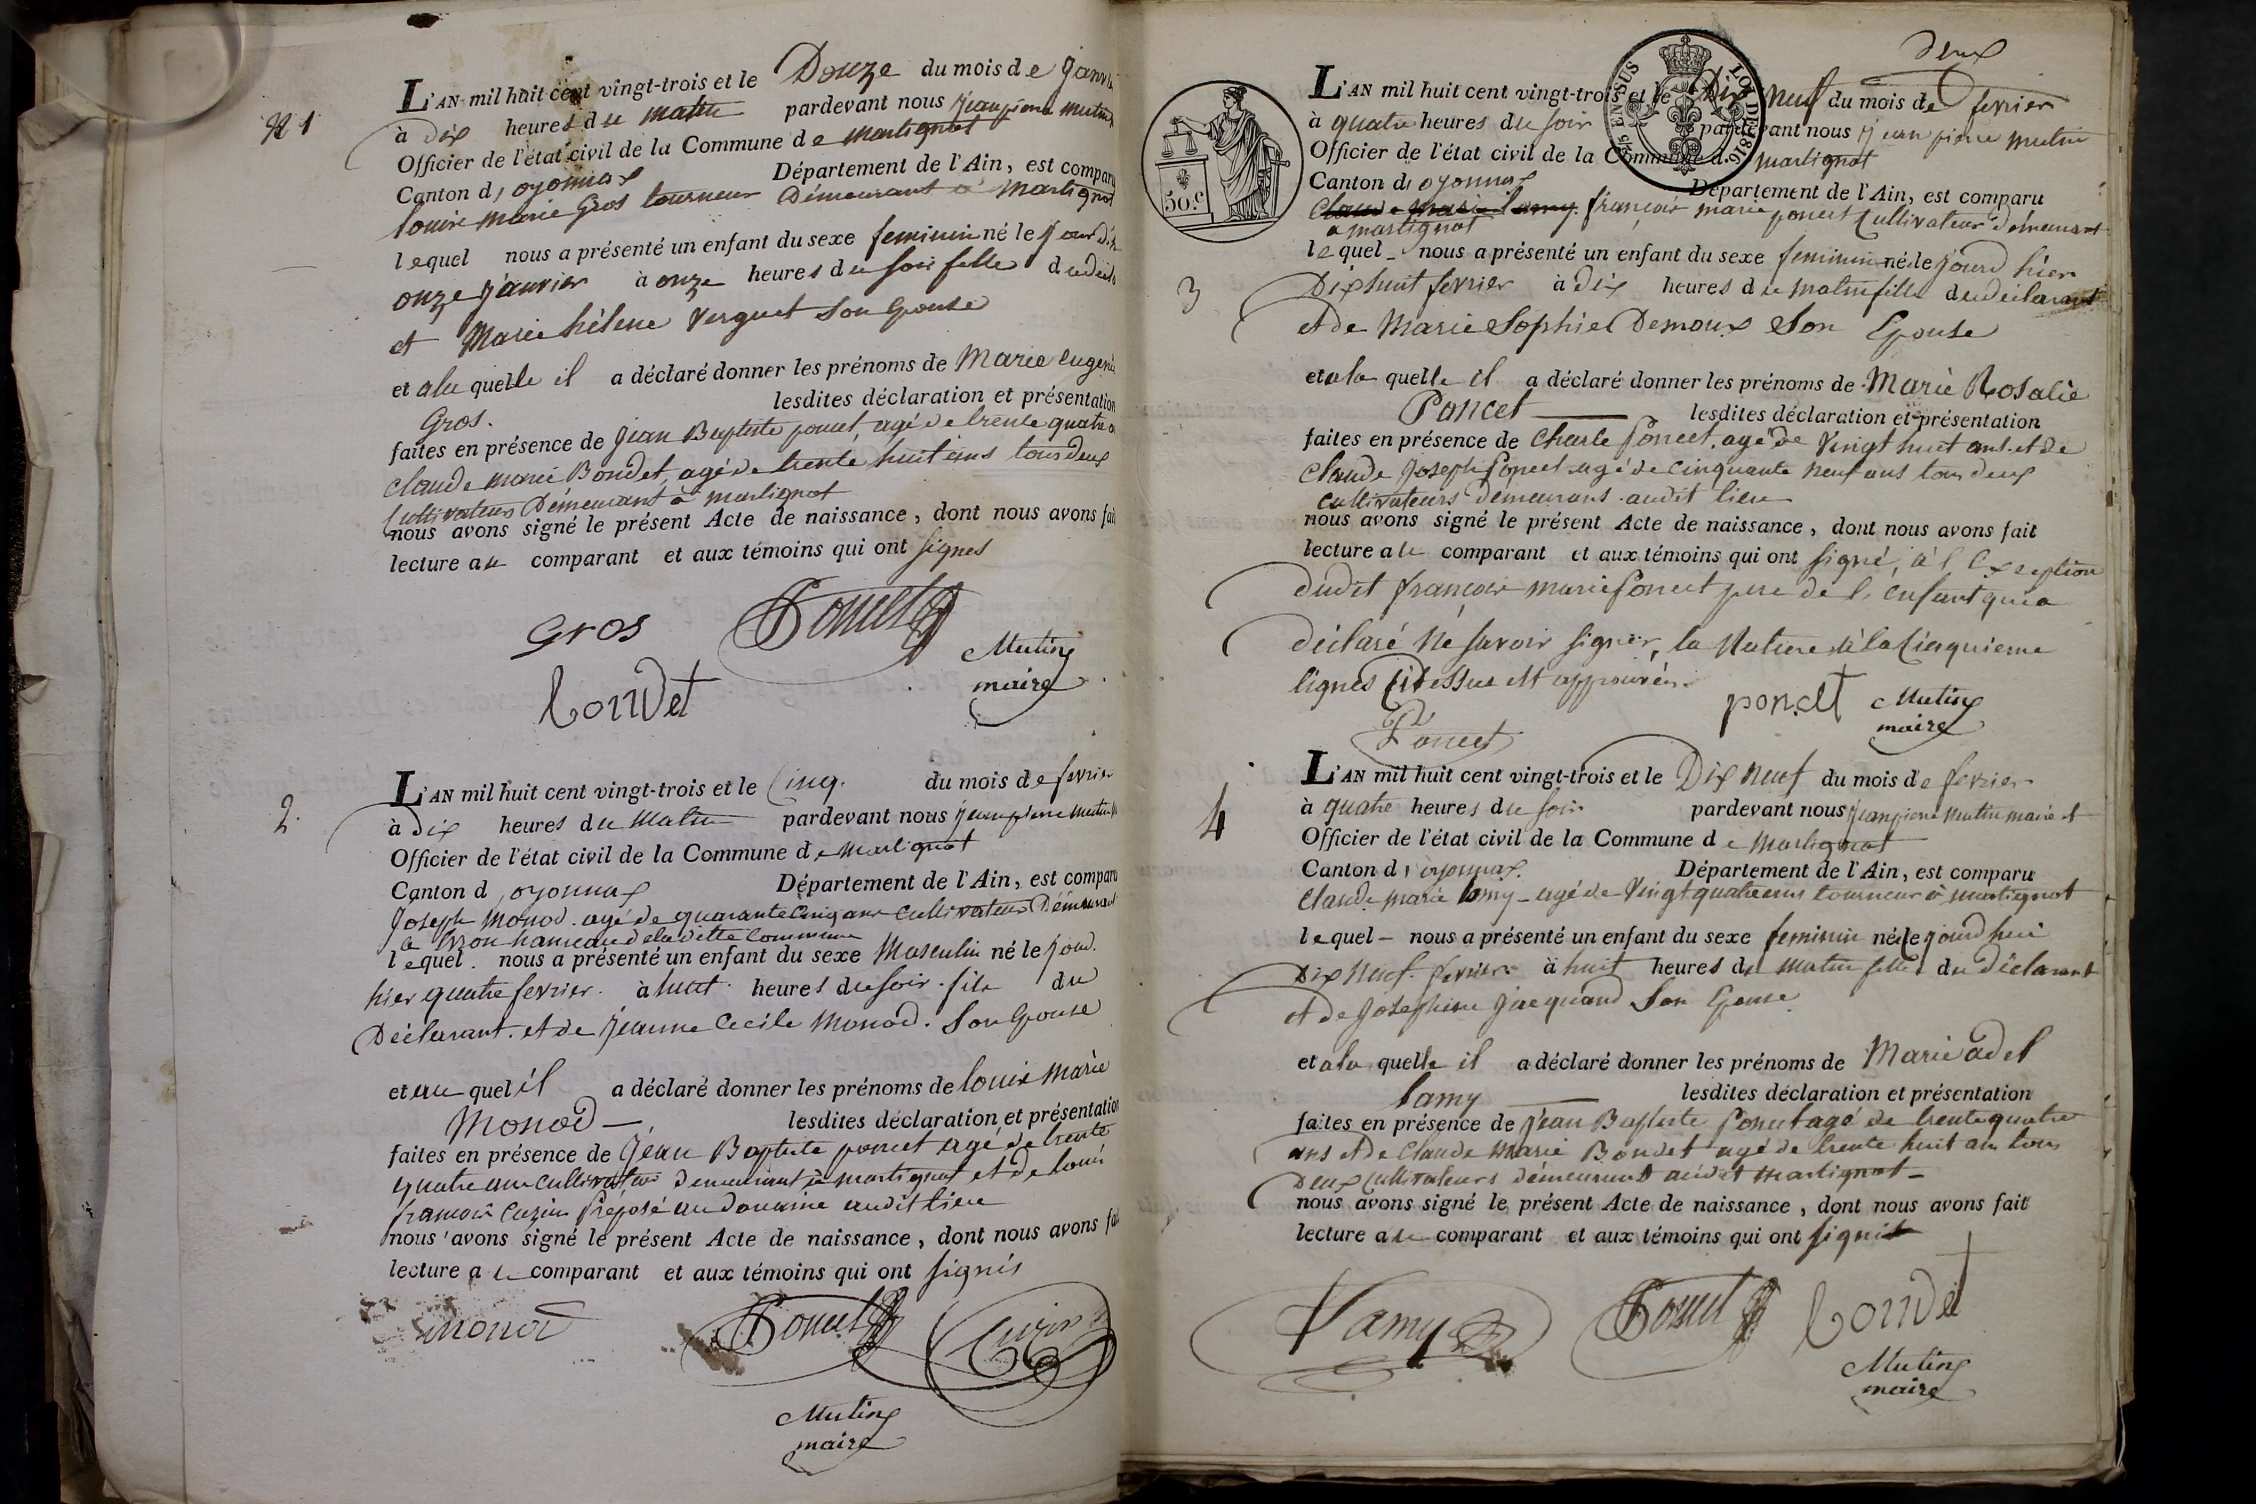 N 1
L'AN mil huit cent vingt-trois et le Douze du mois de Janvi
à Dix heures du matin pardevant nous Jean pierre mutin
Officier de l'état civil de la Commune de martignat
Canton d'oyonnax Département de l'Ain, est comparu
louis marie Gros tourneur Démeurant à Martignat
lequel nous a présenté un enfant du sexe feminin né le jour d'h
onze janvier à onze heures du soir fille du décla
et Marie hélene Verguet Son Epouse
et a la quelle il a déclaré donner les prénoms de Marie Eugenie
Gros. lesdites déclaration et présentation
faites en présence de Jean Baptiste poncet, agé de trente quatre a
claude marie Bondet, agé de trente huit ans tous deux
Cultivateurs Démeurant à martignat
nous avons signé le présent Acte de naissance, dont nous avons fait
lecture au comparant et aux témoins qui ont signés
Gros Poncet
Mutin
maire
bondet
2.
L'AN mil huit cent vingt-trois et le Cinq. du mois de fevrier
à Dix heures du Matin pardevant nous Jean pierre Mutin
Officier de l'état civil de la Commune de Martignat
Canton d'oyonnax Département de l'Ain, est comparu
Joseph Monod. agé de quarante Cinq ans Cultivateur Démeurant
hameau de la ditte Commune
lequel. nous a présenté un enfant du sexe Masculin né le jourd.
hier quatre fevrier. à huit. heures du soir. fils du
Déclarant. et de Jeanne Cecile Monod. Son Epouse
et au quel il a déclaré donner les prénoms de louis Marie
Monod — lesdites déclaration et présentation
faites en présence de Jean Baptiste poncet agé de trente
quatre ans Cultivateur demeurant à martignat et de louis
francois Cuzin Préposé au domaine audit lieu
nous avons signé le présent Acte de naissance, dont nous avons fai
lecture au comparant et aux témoins qui ont signés
monod Poncet Cuzin
Mutin
maire
deux
50 c.
25 EN SUS LOI DE 1816
3
L'AN mil huit cent vingt-trois et le Dix Neuf du mois de fevrier
à quatre heures du soir pardevant nous Jean pierre Mutin
Officier de l'état civil de la Commune d. martignat
Canton d'oyonnax Département de l'Ain, est comparu
Claude Marie lamy. françois marie poncet Cultivateur démeurant
a martignat
lequel nous a présenté un enfant du sexe feminin né le jourd hier
Dix huit fevrier à Dix heures du Matin fille du déclarant
et de Marie Sophie Demoux Son Epouse
et a la quelle il a déclaré donner les prénoms de Marie Rosalie
Poncet — lesdites déclaration et présentation
faites en présence de Charle Poncet, agé de Vingt huit ans. et de
Claude Joseph Poncet agé de Cinquante Neuf ans tous deux
Cultivateurs démeurans audit lieu
nous avons signé le présent Acte de naissance, dont nous avons fait
lecture au comparant et aux témoins qui ont signé, à l'Exception
dudit françois marie Poncet pere de l'enfant qui a
déclaré Ne savoir signer, la Rature à la Cinquieme
lignes Cidessus est approuvée.
poncet Mutin
maire
Poncet
4
L'AN mil huit cent vingt-trois et le Dix Neuf du mois de fevrier
à quatre heures du soir pardevant nous Jean pierre Mutin maire et
Officier de l'état civil de la Commune de Martignat
Canton d'oyonnax. Département de l'Ain, est comparu
Claude marie lamy agé de Vingt quatre ans tourneur à martignat
lequel — nous a présenté un enfant du sexe feminin né le jourd'hui
Dix Neuf. fevrier. à huit heures du matin fille du déclarant
et de Josephine Jacquand Son Epouse
et a la quelle il a déclaré donner les prénoms de Marie adel
lamy — lesdites déclaration et présentation
faites en présence de Jean Baptiste Poncet agé de trente quatre
ans et de Claude Marie Bondet agé de trente huit ans tous
deux Cultivateurs démeurant audit Martignat —
nous avons signé le présent Acte de naissance, dont nous avons fait
lecture au comparant et aux témoins qui ont signé
Lamy Poncet bondet
Mutin
maire